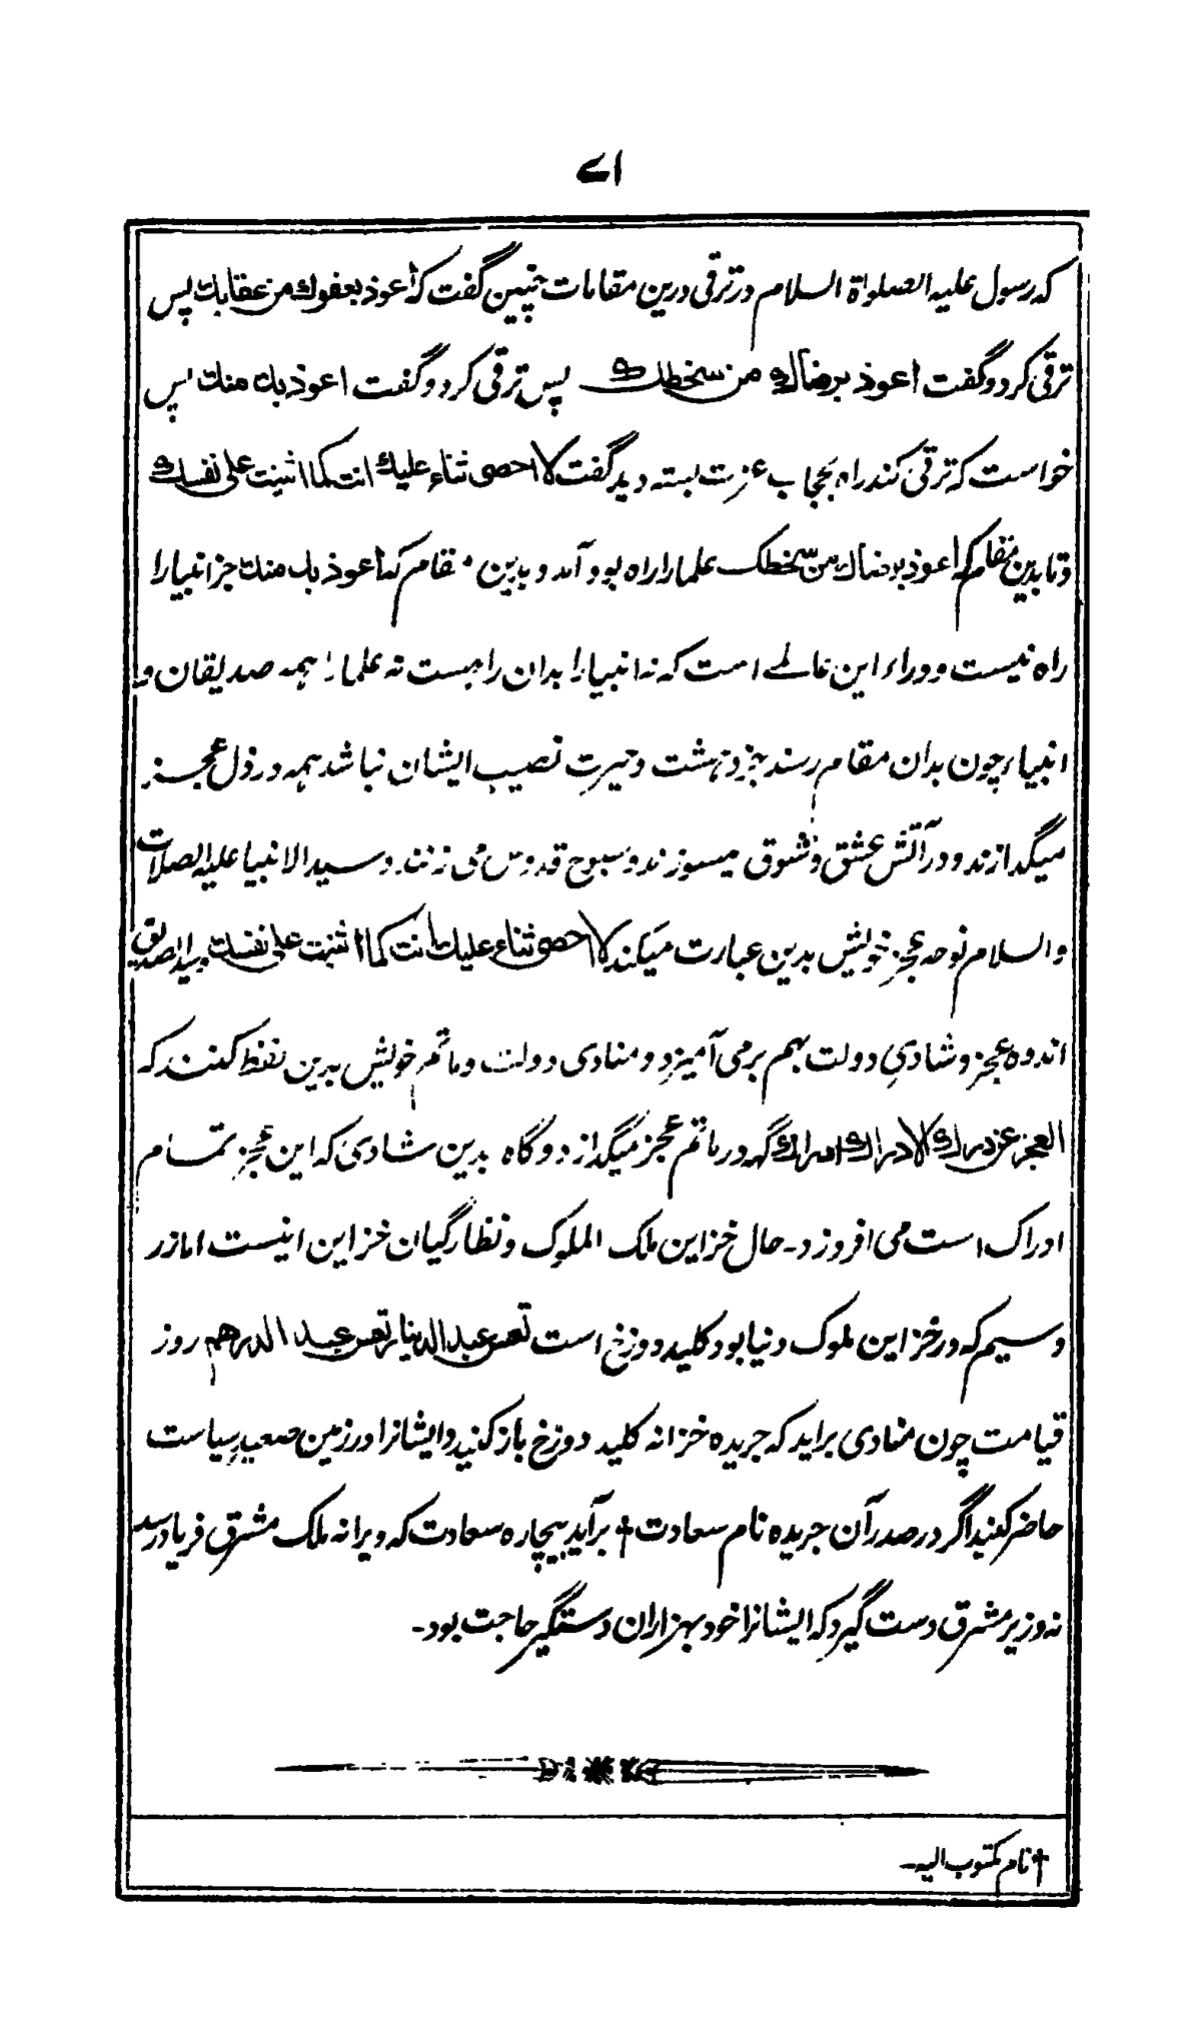 ۷۱
که رسول علیه الصلواة السلام در ترقی درین مقامات چنین گفت که اعوذ بعفوك من عقابك پس
ترقی کرد و گفت اعوذ برضاك من سخطك پس ترقی کرد و گفت اعوذ بك منك پس
خواست که ترقی کند راه بحجاب عزت بسته دید گفت لا احصی ثناء علیك انت کما اثنیت علی نفسك
و تا بدین مقام که اعوذ برضاك من سخطك علما را راه بود آمد و بدین مقام که اعوذ بك منك جز انبیا را
راه نیست و وراء این عالمے است که نه انبیا را بدان راهست نه علما را همه صدیقان و
انبیاء چون بدان مقام رسند بجز دهشت و حیرت نصیب ایشان نباشد همه در ذل عجز
میگدازند و در آتش عشق و شوق میسوزند و سبوح قدوس می زنند و سید الانبیا علیه الصلات
والسلام نوحه عجز خویش بدین عبارت میکند لا احصی ثناء علیك انت کما اثنیت علی نفسك و سید الصدیق
اندوه عجز و شادی دولت بهم برمی آمیزد و منادی دولت و ماتم خویش بدین لفظ کنند که
العجز عن درك الادراك ادراك گهه در ماتم عجز میگدازد و گاه بدین شادی که این عجز تمام
ادراک است می افروزد۔ حال خزاین ملک الملوک و نظارگیان خزاین اینست اما زر
و سیم که در خزاین ملوک دنیا بود کلید دوزخ است تعس عبد الدینار تعس عبد الدرهم روز
قیامت چون منادی براید که جریده خزانه کلید دوزخ باز کنید و ایشانرا در زمین صعید سیاست
حاضر کنید اگر در صدر آن جریده نام سعادت † برآید بیچاره سعادت که ویرا نه ملک مشرق فریاد رسد
نه وزیر مشرق دست گیرد که ایشانرا خود بهزاران دستگیر حاجت بود۔
† نام مکتوب الیه۔